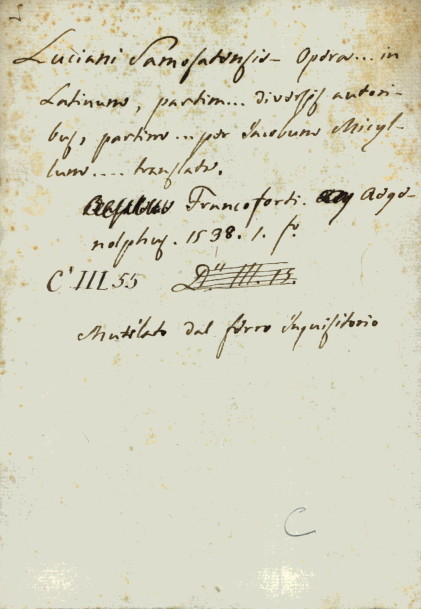 Luciani Samosatensis Opera... in
Latinum, partim... diversis autori-
bus, partim... per Jacobum Micyl-
lum.... translata.
Francoforti.
1538. 1. fo.
C' III 55 D.u III. 15.
Mutilato dal ferro inquisitorio
C